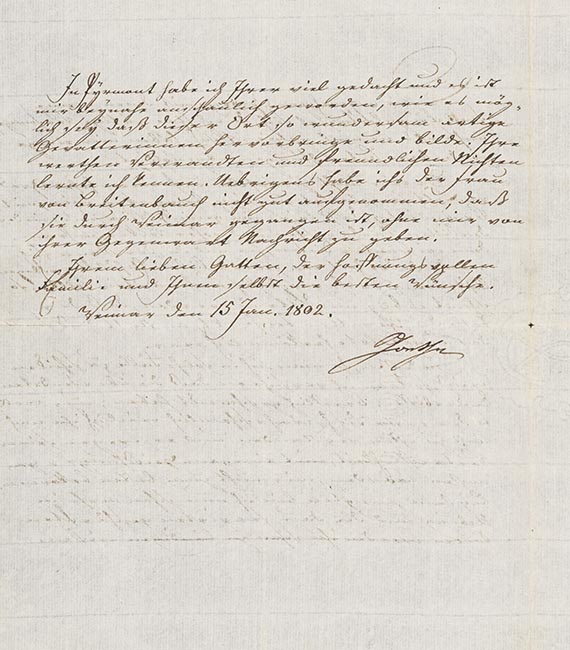 In Pyrmont habe ich Ihrer viel gedacht und es ist
mir beynahe anschaulich geworden, wie es mög-
lich sey daß dieser Ort so wundersam artige
Gevatterinnen hervorbringe und bilde. Ihre
werthen Verwandten und freundlichen Nichten
lernte ich kennen. Uebrigens habe ichs der Frau
von Breitenbauch nicht gut aufgenommen, daß
sie durch Weimar gegangen ist, ohne mir von
ihrer Gegenwart Nachricht zu geben.
Ihrem lieben Gatten, der hoffnungsvollen
Familie und Ihnen selbst die besten Wünsche.
Weimar den 15 Jan. 1802.
Goethe